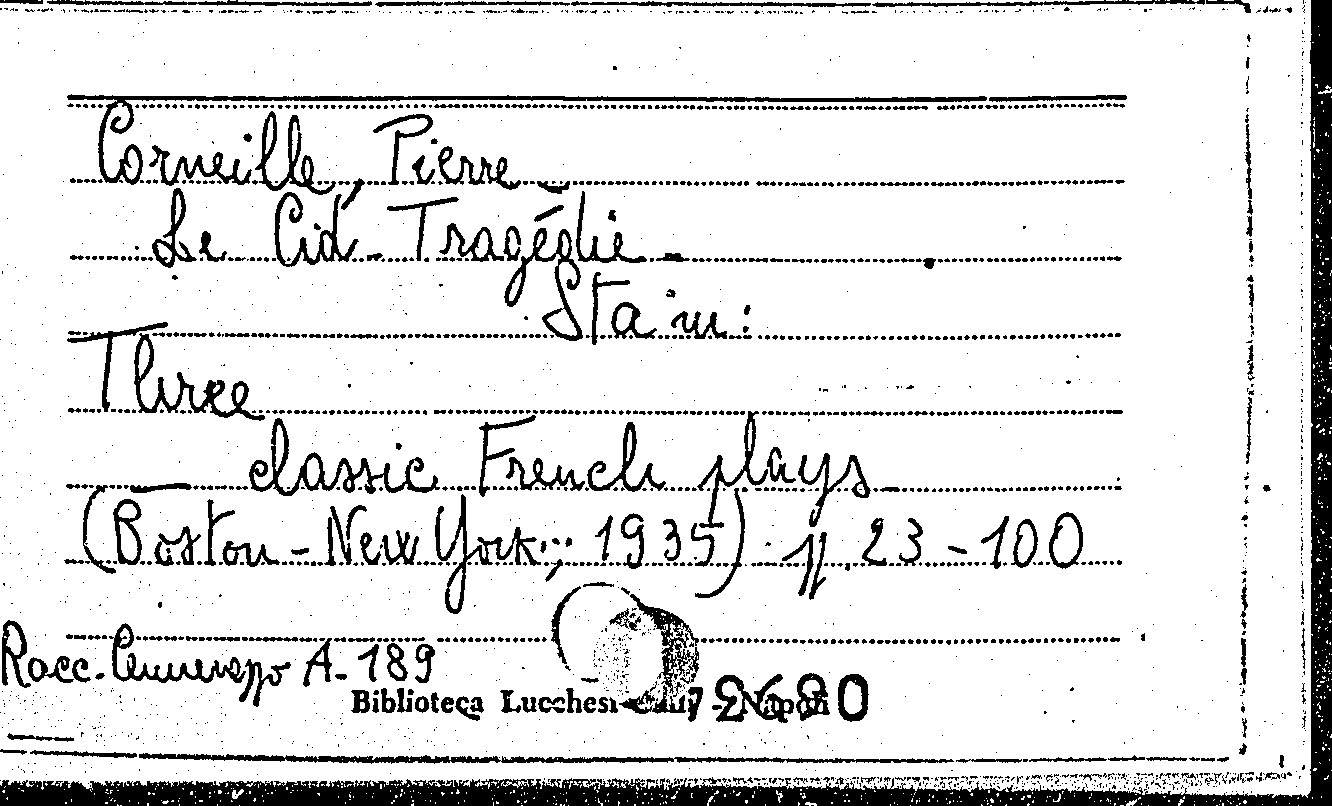 Corneille, Pierre -
Le Cid - Tragédie -
Sta in:
Three
classic French plays
(Boston - New York, 1935) pp. 23 - 100
Racc. A-189
Biblioteca Lucchesi